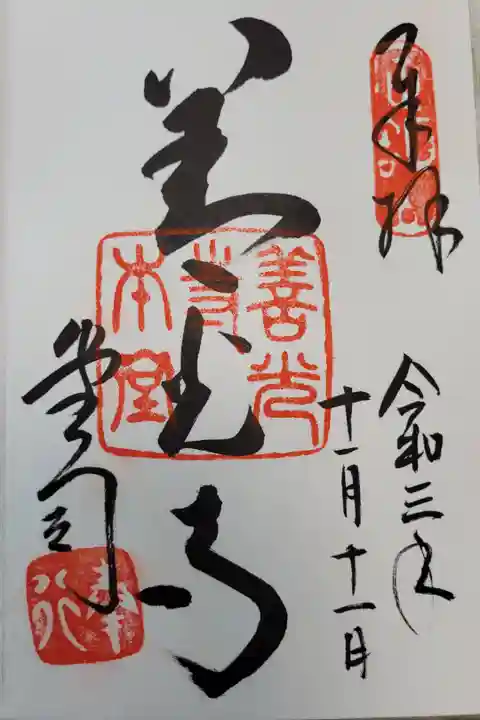 奉拝
令和三年
十一月十一日
善光寺
善光
寺
本堂
堂司